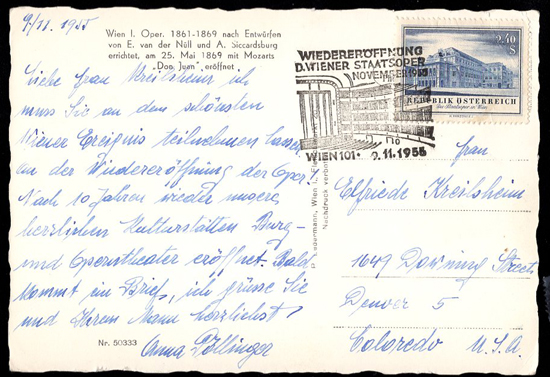 9/11. 1955
Wien I. Oper. 1861-1869 nach Entwürfen
von E. van der Nüll und A. Siccardsburg
errichtet, am 25. Mai 1869 mit Mozarts
"Don Juan" eröffnet
Liebe Frau Kreilsheim ich
muss Sie an dem schönsten
Wiener Ereignis teilnehmen lassen
an der Wiedereröffnung der Oper.
Nach 10 Jahren wieder unsere
herzlichen Kulturstätten Burg-
und Operntheater eröffnet. Bald
kommt ein Brief, ich grüsse Sie
und Ihrem Mann herzlichst
Anna Döllinger
Nr. 50333
WIEDERERÖFFNUNG
D. WIENER STAATSOPER
NOVEMBER 1955
WIEN 101 · 9.11.1955
Nachdruck verboten
2.40
S
REPUBLIK ÖSTERREICH
Frau
Elfriede Kreilsheim
1649 Downing Street
Denver 5
Coloredo U.S.A.